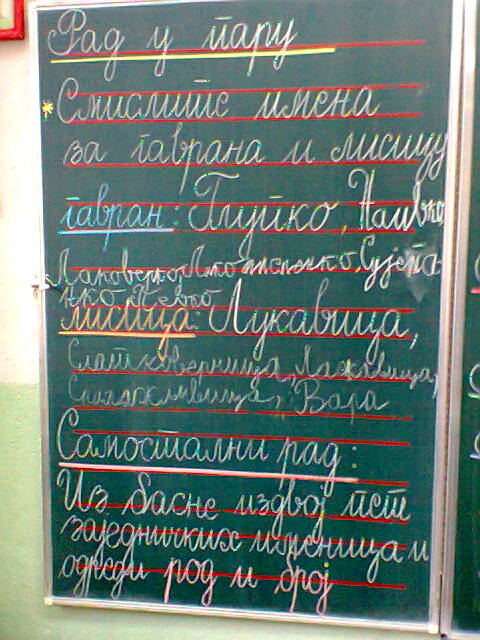 Рад у пару
Смислите имена
за гаврана и лисицу
гавран: Глупко, Наивко,
Лаковерко, Лакомисленко, Сујета-
нко
лисица: Лукавица,
Слаткоречица, Ласкавица,
Вара
Самостални рад:
Из басне издвој пет
заједничких именица и
одреди род и број